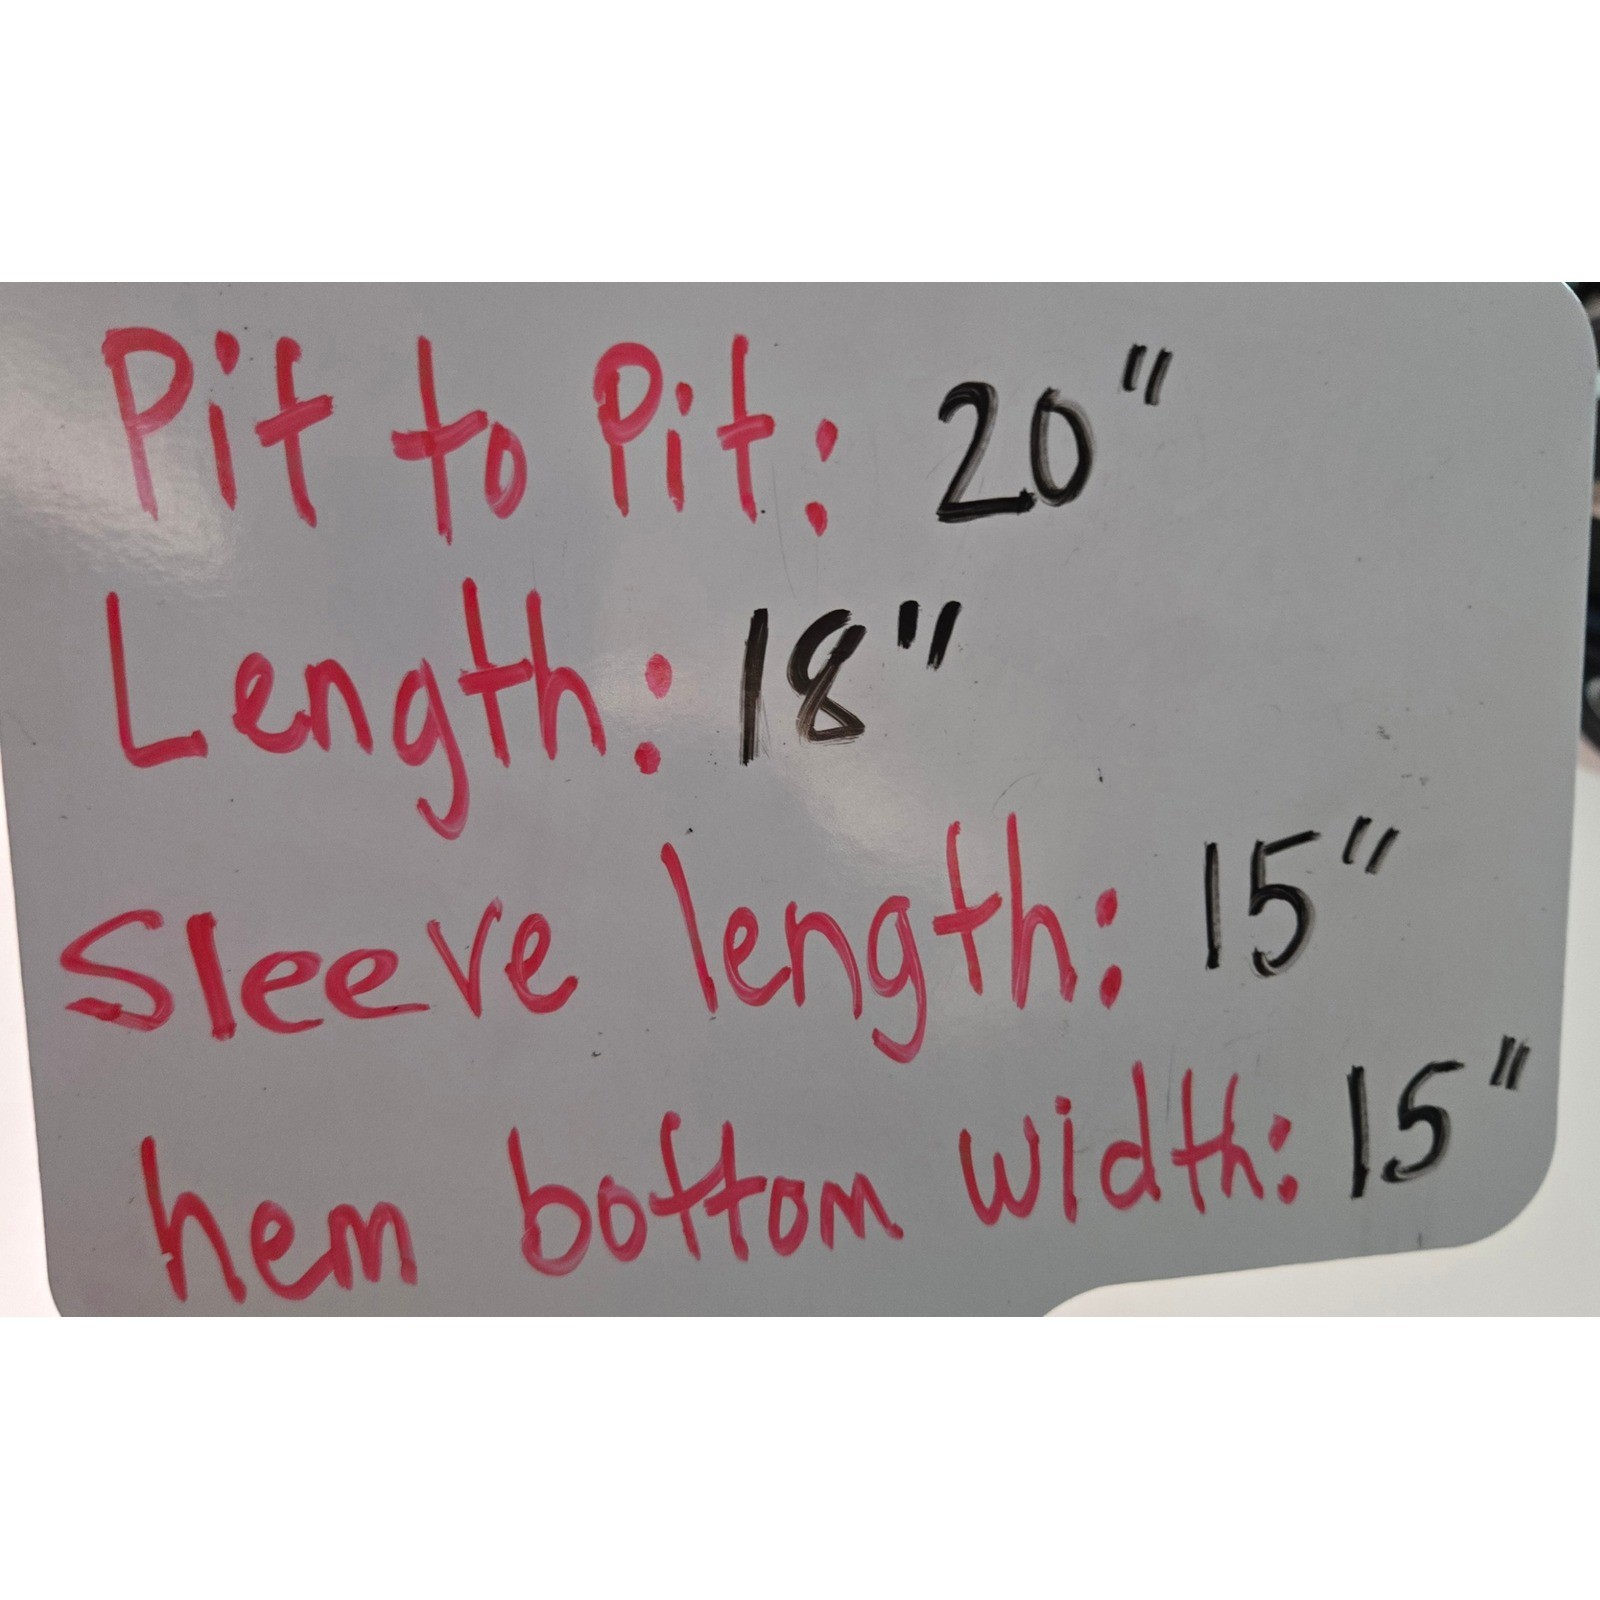 Pit to Pit: 20"
Length: 18"
Sleeve length: 15"
hem bottom width: 15"